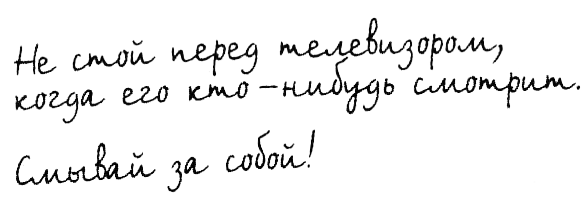 Не стой перед телевизором,
когда его кто-нибудь смотрит.
Смывай за собой!